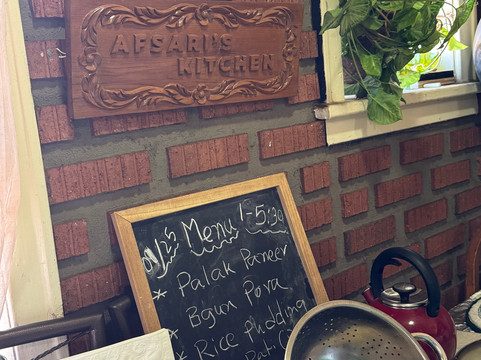 AFSARI'S
KITCHEN
Menu 1-5:30
* Palak Paneer
* Bgun Pora
* Rice Pudding